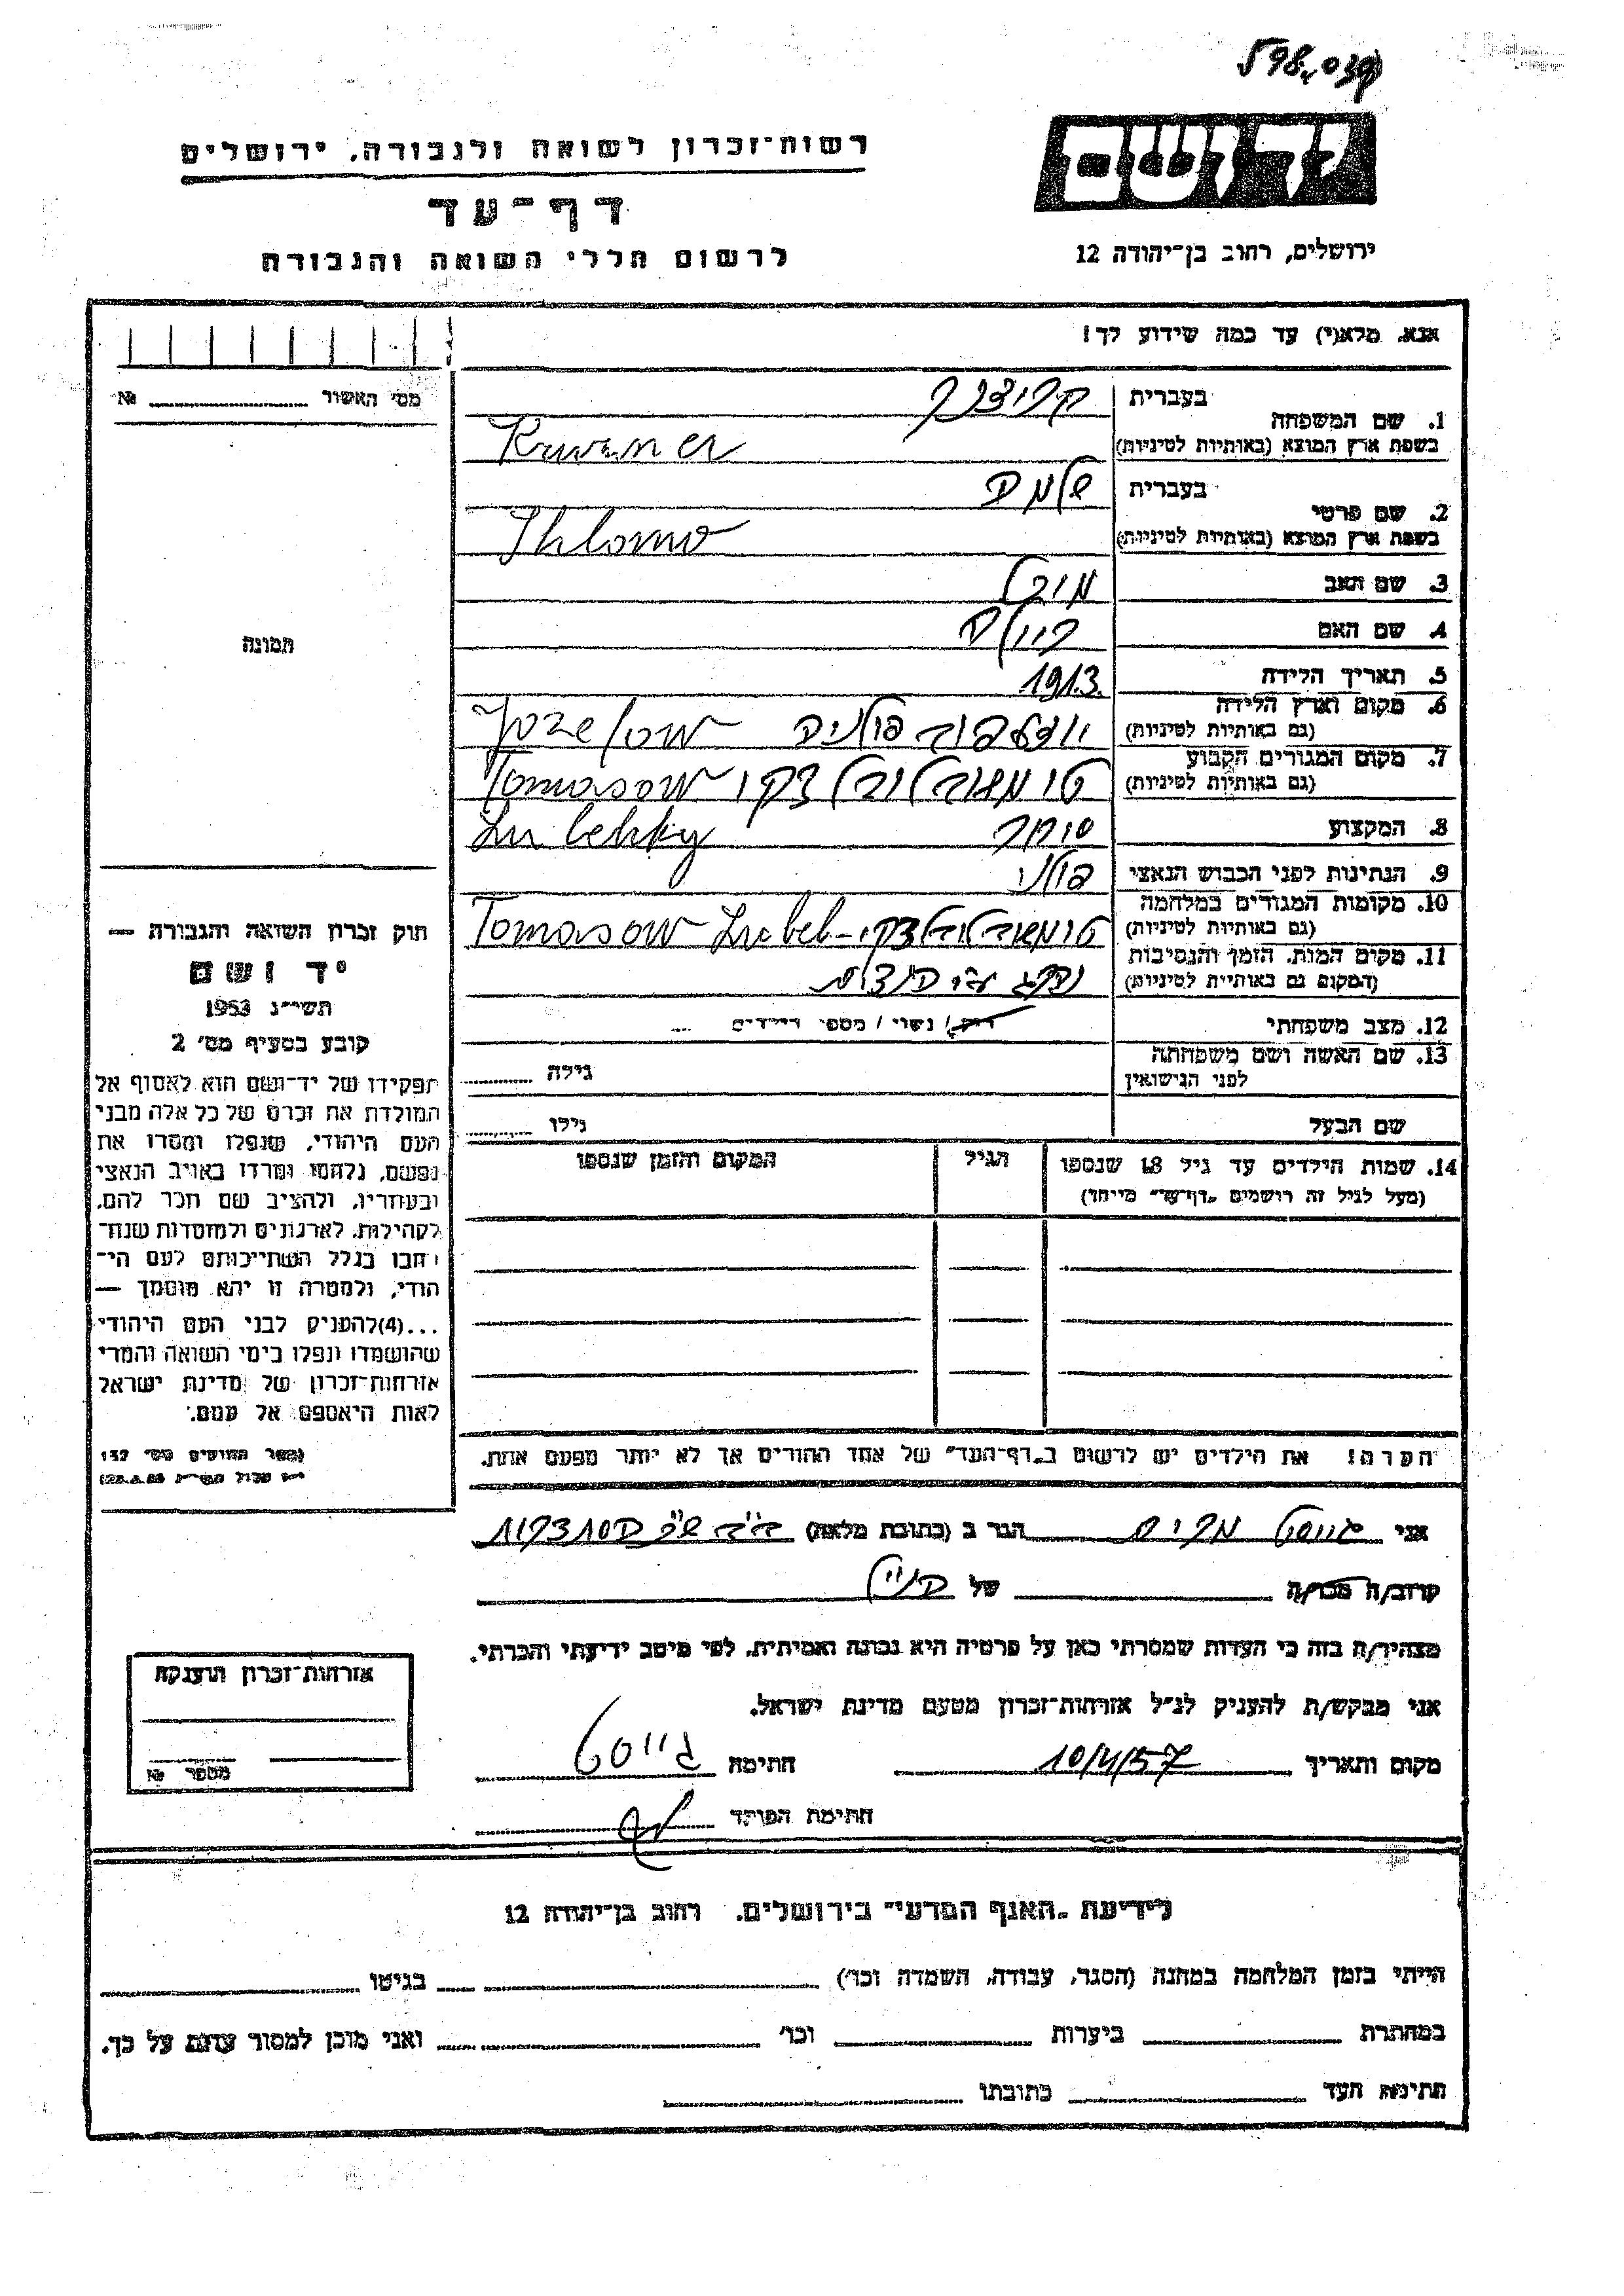 רשות־זכרון לשואה ולגבורה, ירושלים
דף־עד
לרשום חללי השואה והגבורה
יד ושם
ירושלים, רחוב בן־יהודה 12
אנא, מלא(י) עד כמה שידוע לך!
מס׳ האשור №
תמונה
1. שם המשפחה
בעברית
בשפת ארץ המוצא (באותיות לטיניות)
2. שם פרטי
בעברית שלמה
בשפת ארץ המוצא (באותיות לטיניות) Shlomo
3. שם האב
4. שם האם
5. תאריך הלידה 1913
6. מקום וארץ הלידה
(גם באותיות לטיניות) פולניה Jozefow
7. מקום המגורים הקבוע
(גם באותיות לטיניות) Tomasow
8. המקצוע סוחר
9. הנתינות לפני הכבוש הנאצי פולני
10. מקומות המגורים במלחמה
(גם באותיות לטיניות) Tomasow Lubel-
11. מקום המות, הזמן והנסיבות
(המקום גם באותיות לטיניות) נהרג ע״י
12. מצב משפחתי רווק / נשוי / מספר הילדים
13. שם האשה ושם משפחתה
לפני הנישואין
גילה
שם הבעל
גילו
14. שמות הילדים עד גיל 18 שנספו
(מעל לגיל זה רושמים „דף־עד״ מיוחד)
הגיל
המקום והזמן שנספו
הערה! את הילדים יש לרשום ב„דף־העד״ של אחד ההורים אך לא יותר מפעם אחת.
חוק זכרון השואה והגבורה —
יד ושם
תשי״ג 1953
קובע בסעיף מס׳ 2
תפקידו של יד־ושם הוא לאסוף אל
המולדת את זכרם של כל אלה מבני
העם היהודי, שנפלו ומסרו את
נפשם, נלחמו ומרדו באויב הנאצי
ובעוזריו, ולהציב שם וזכר להם,
לקהילות, לארגונים ולמוסדות שנח־
רבו בגלל השתייכותם לעם הי־
הודי, ולמטרה זו יהא מוסמך —
...(4)להעניק לבני העם היהודי
שהושמדו ונפלו בימי השואה והמרי
אזרחות־זכרון של מדינת ישראל
לאות היאספם אל עמם.
ספר החוקים מס׳ 132
אני הגר ב (כתובת מלאה)
קרוב/ה מכר/ה של
מצהיר/ה בזה כי העדות שמסרתי כאן על פרטיה היא נכונה ואמיתית, לפי מיטב ידיעתי והכרתי.
אני מבקש/ת להעניק לנ״ל אזרחות־זכרון מטעם מדינת ישראל.
מקום ותאריך 10/4/57 חתימה
חתימת הפוקד
אזרחות־זכרון הוענקה
מספר №
לידיעת „האגף המדעי״ בירושלים, רחוב בן־יהודה 12
הייתי בזמן המלחמה במחנה (הסגר, עבודה, השמדה וכו׳) בגיטו
במחתרת ביערות וכו׳ ואני מוכן למסור עדות על כך.
חתימת העד כתובתו